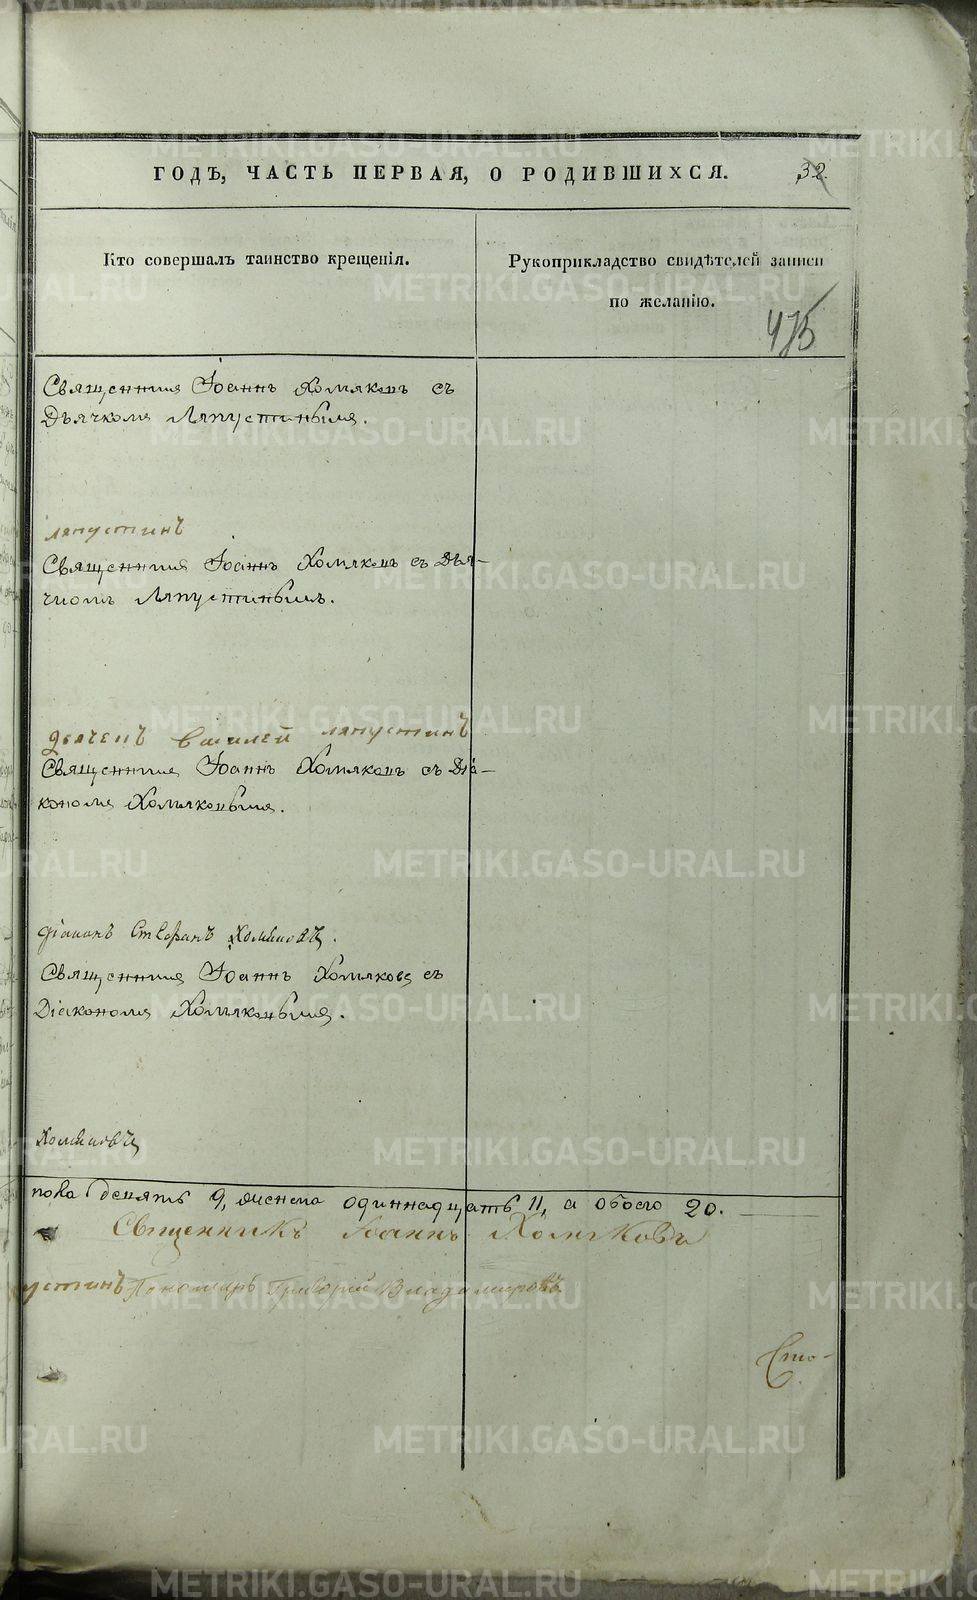 ГОДЪ, ЧАСТЬ ПЕРВАЯ, О РОДИВШИХСЯ. 32.
Кто совершалъ таинство крещенія.
Рукоприкладство свидѣтелей записи
по желанію.
475
Священникъ Іоаннъ Хомяковъ съ
Дьячкомъ Ляпустинымъ.
Ляпустинъ
Священникъ Іоаннъ Хомяковъ съ Дья-
чкомъ Ляпустинымъ.
дьячекъ василей ляпустинъ
Священникъ Іоаннъ Хомяковъ съ Діа-
кономъ Хомяковымъ.
діаконъ Стефанъ Хомяковъ.
Священникъ Іоаннъ Хомяковъ съ
Діакономъ Хомяковымъ.
Хомяковъ
пола девять 9, женска одиннадцать 11, а обоего 20.
Священникъ Іоаннъ Хомяковъ
устинъ Пономарь Григорій Владимировъ
METRIKI.GASO-URAL.RU